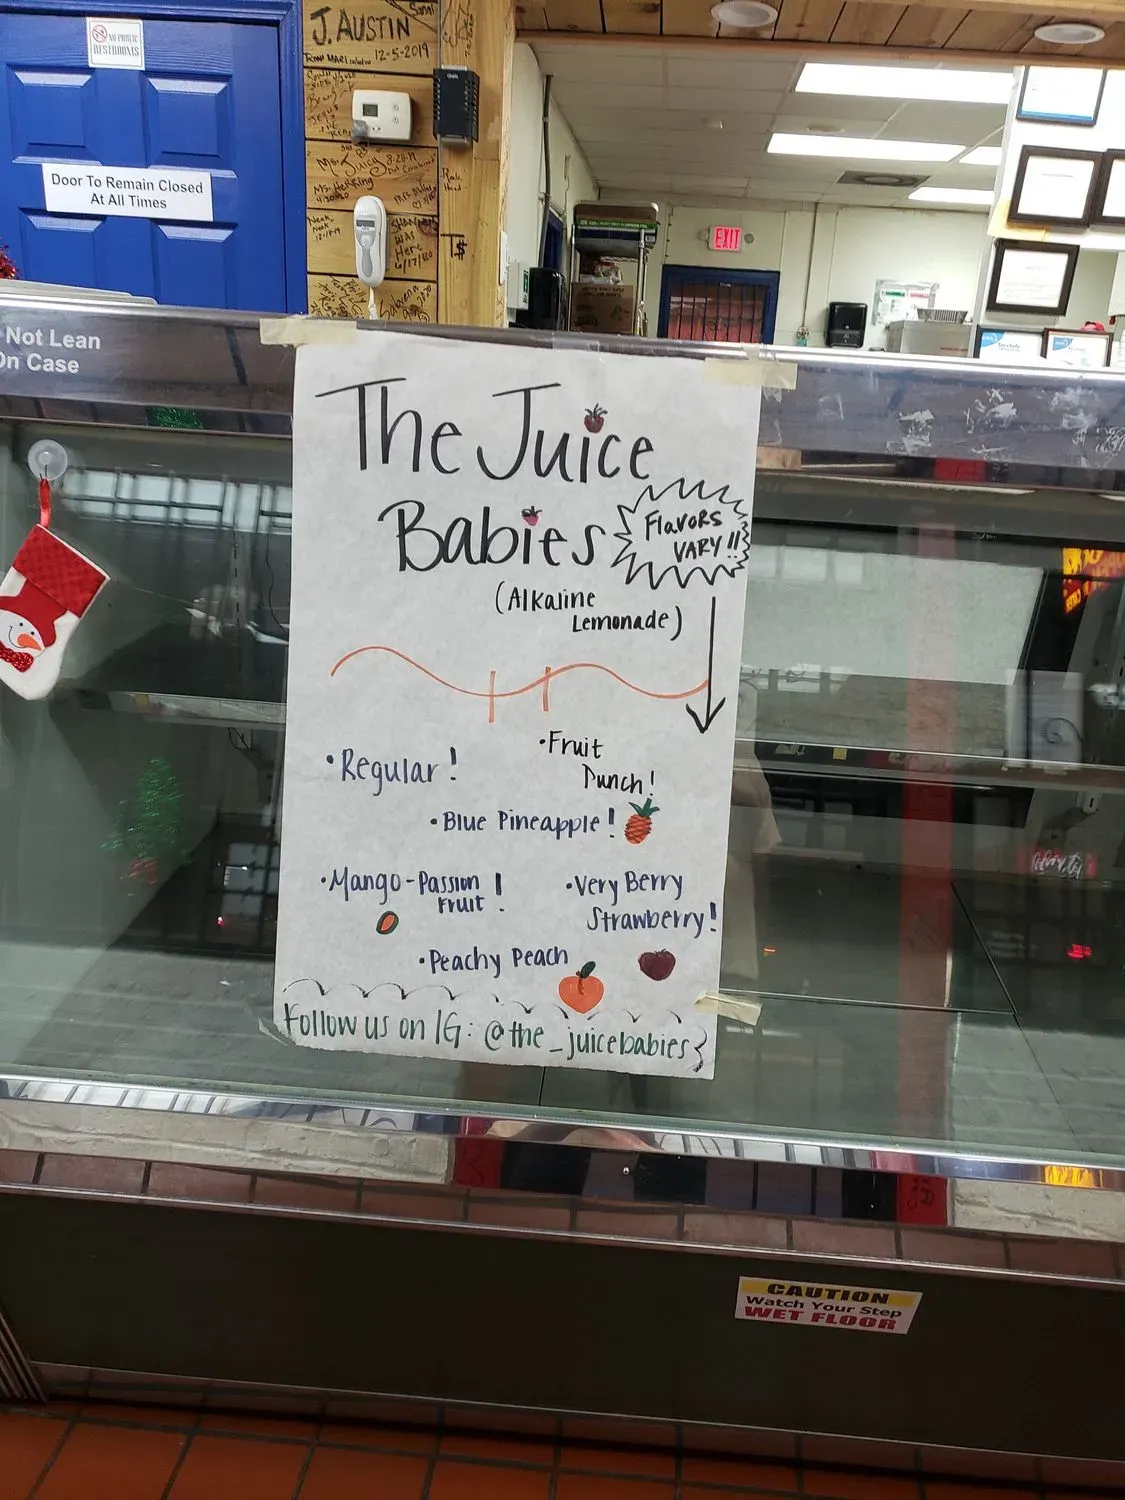 NO PUBLIC
RESTROOMS
Door To Remain Closed
At All Times
J. AUSTIN
12-5-2019
EXIT
Not Lean
On Case
The Juice
Babies
Flavors
VARY!!
(Alkaline
Lemonade)
•Regular!
•Fruit
Punch!
•Blue Pineapple!
•Mango-Passion
Fruit!
•Very Berry
Strawberry!
•Peachy Peach
Follow us on IG: @the_juicebabies
CAUTION
Watch Your Step
WET FLOOR